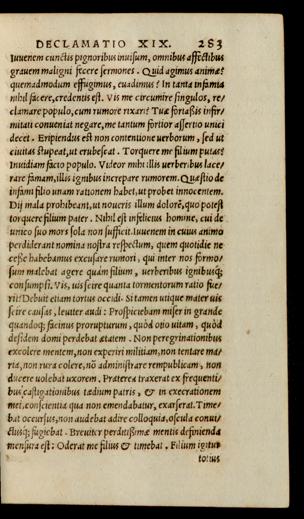 DECLAMATIO XIX. 283
Iuuenem cunctis pignoribus inuisum, omnibus affectibus
grauem maligni fecere sermones. Quid agimus animæ?
quemadmodum effugimus, euadimus? In tanta infamia
nihil facere, credentis est. Vis me circumire singulos, re/
clamare populo, cum rumore rixari? Tuæ fortaßis infir/
mitati conueniat negare, me tantum fortior assertio unici
decet. Eripiendus est non contentione uerborum, sed ut
ciuitas stupeat, ut erubescat. Torquere me filium putas?
Inuidiam facto populo. Videor mihi illis uerberibus lace/
rare famam, illis ignibus increpare rumorem. Quæstio de
infami filio unam rationem habet, ut probet innocentem.
Dij mala prohibeant, ut noueris illum dolorē, quo potest
torquere filium pater. Nihil est infelicius homine, cui de
unico suo mors sola non sufficit. Iuuenem in cuius animo
perdiderant nomina nostra respectum, quem quotidie ne
cesse habebamus excusare rumori, qui inter nos formo/
sum malebat agere quàm filium, uerberibus ignibusq;
consumpsi. Vis, uis scire quanta tormentorum ratio fue/
rit? Debuit etiam tortus occidi. Si tamen utique mater uis
scire causas, leuiter audi: Prospiciebam miser in grande
quandoq; facinus prorupturum, quòd otio uitam, quòd
desidem domi perdebat ætatem. Non peregrinationibus
excolere mentem, non experiri militiam, non tentare ma/
ria, non rura colere, nō administrare rempublicam, non
ducere uolebat uxorem. Præterea traxerat ex frequenti/
bus castigationibus tædium patris, & in execrationem
mei, conscientia qua non emendabatur, exarserat. Time/
bat occursus, non audebat adire colloquia, oscula conui/
ctusq; fugiebat. Breuiter perditißimæ mentis definienda
mensura est: Oderat me filius & timebat. Filium igitur
totius